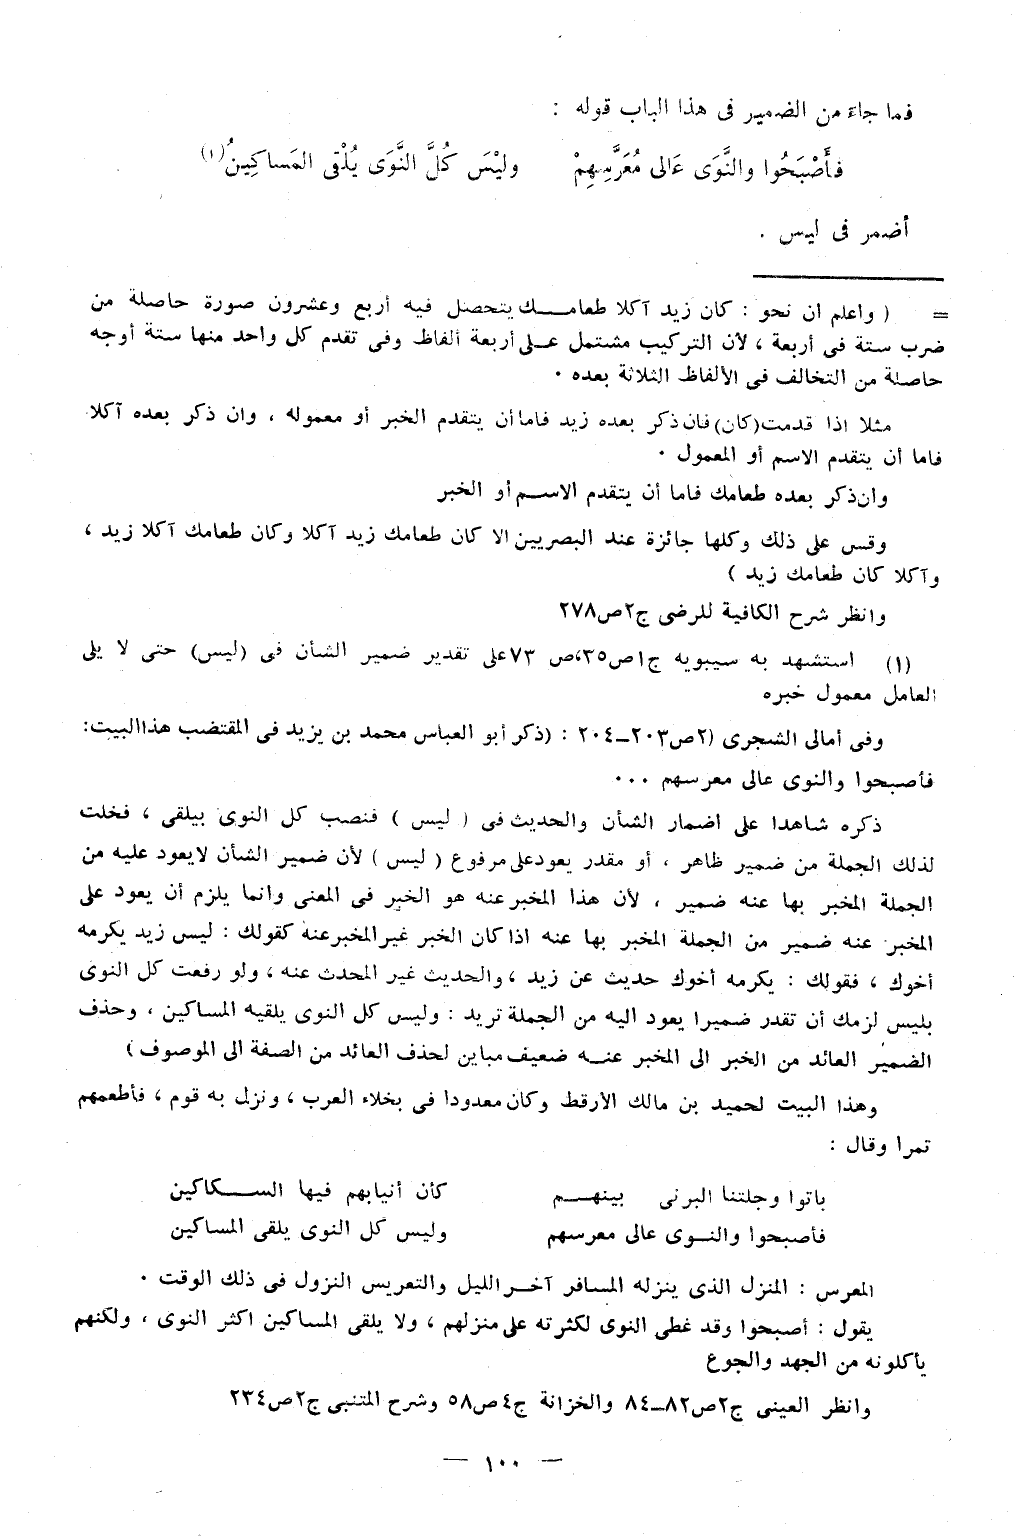 فما جاءَ من الضمير فى هذا الباب قوله :
فأَصْبَحُوا والنَّوَى عَالى مُعَرَّسِهِمْ وليْسَ كُلَّ النَّوَى يُلْقى المَساكِينُ(١)
أضمر فى ليس .
= ( واعلم ان نحو : كان زيد آكلا طعامـــك يتحصل فيه أربع وعشرون صورة حاصلة من
ضرب ستة فى أربعة ، لأن التركيب مشتمل عـلى أربعة ألفاظ وفى تقدم كل واحد منها ستة أوجه
حاصلة من التخالف فى الألفاظ الثلاثة بعده .
مثلا اذا قدمت (كان) فان ذكر بعده زيد فاما أن يتقدم الخبر أو معموله ، وان ذكر بعده آكلا
فاما أن يتقدم الاسم أو المعمول .
وان ذكر بعده طعامك فاما أن يتقدم الاســم أو الخبر
وقس على ذلك وكلها جائزة عند البصريين الا كان طعامك زيد آكلا وكان طعامك آكلا زيد ،
وآكلا كان طعامك زيد )
وانظر شرح الكافية للرضى ج٢ص٢٧٨
(١) استشهد به سيبويه ج١ص٣٥،ص ٧٣على تقدير ضمير الشأن فى (ليس) حتى لا يلى
العامل معمول خبره
وفى أمالى الشجرى (٢ص٢٠٣ــ٢٠٤ : (ذكر أبو العباس محمد بن يزيد فى المقتضب هذا البيت:
فأصبحوا والنوى عالى معرسهم ...
ذكره شاهدا على اضمار الشأن والحديث فى ( ليس ) فنصب كل النوى بيلقى ، فخلت
لذلك الجملة من ضمير ظاهر ، أو مقدر يعود على مرفوع ( ليس ) لأن ضمير الشأن لايعود عليه من
الجملة المخبر بها عنه ضمير ، لأن هذا المخبر عنه هو الخبر فى المعنى وانما يلزم أن يعود على
المخبر عنه ضمير من الجملة المخبر بها عنه اذا كان الخبر غير المخبر عنه كقولك : ليس زيد يكرمه
أخوك ، فقولك : يكرمه أخوك حديث عن زيد ، والحديث غير المحدث عنه ، ولو رفعت كل النوى
بليس لزمك أن تقدر ضميرا يعود اليه من الجملة تريد : وليس كل النوى يلقيه المساكين ، وحذف
الضمير العائد من الخبر الى المخبر عنــه ضعيف مباين لحذف العائد من الصفة الى الموصوف )
وهذا البيت لحميد بن مالك الأرقط وكان معدودا فى بخلاء العرب ، ونزل به قوم ، فأطعمهم
تمرا وقال :
باتوا وجلتنا البرنى بينهـــم كأن أنيابهم فيها الســـكاكين
فأصبحوا والنــوى عالى معرسهم وليس كل النوى يلقى المساكين
المعرس : المنزل الذى ينزله المسافر آخـر الليل والتعريس النزول فى ذلك الوقت .
يقول : أصبحوا وقد غطى النوى لكثرته على منزلهم ، ولا يلقى المساكين اكثر النوى ، ولكنهم
يأكلونه من الجهد والجوع
وانظر العينى ج٢ص٨٢ــ٨٤ والخزانة ج٤ص٥٨ وشرح المتنبى ج٢ص٢٣٤
— ١٠٠ —